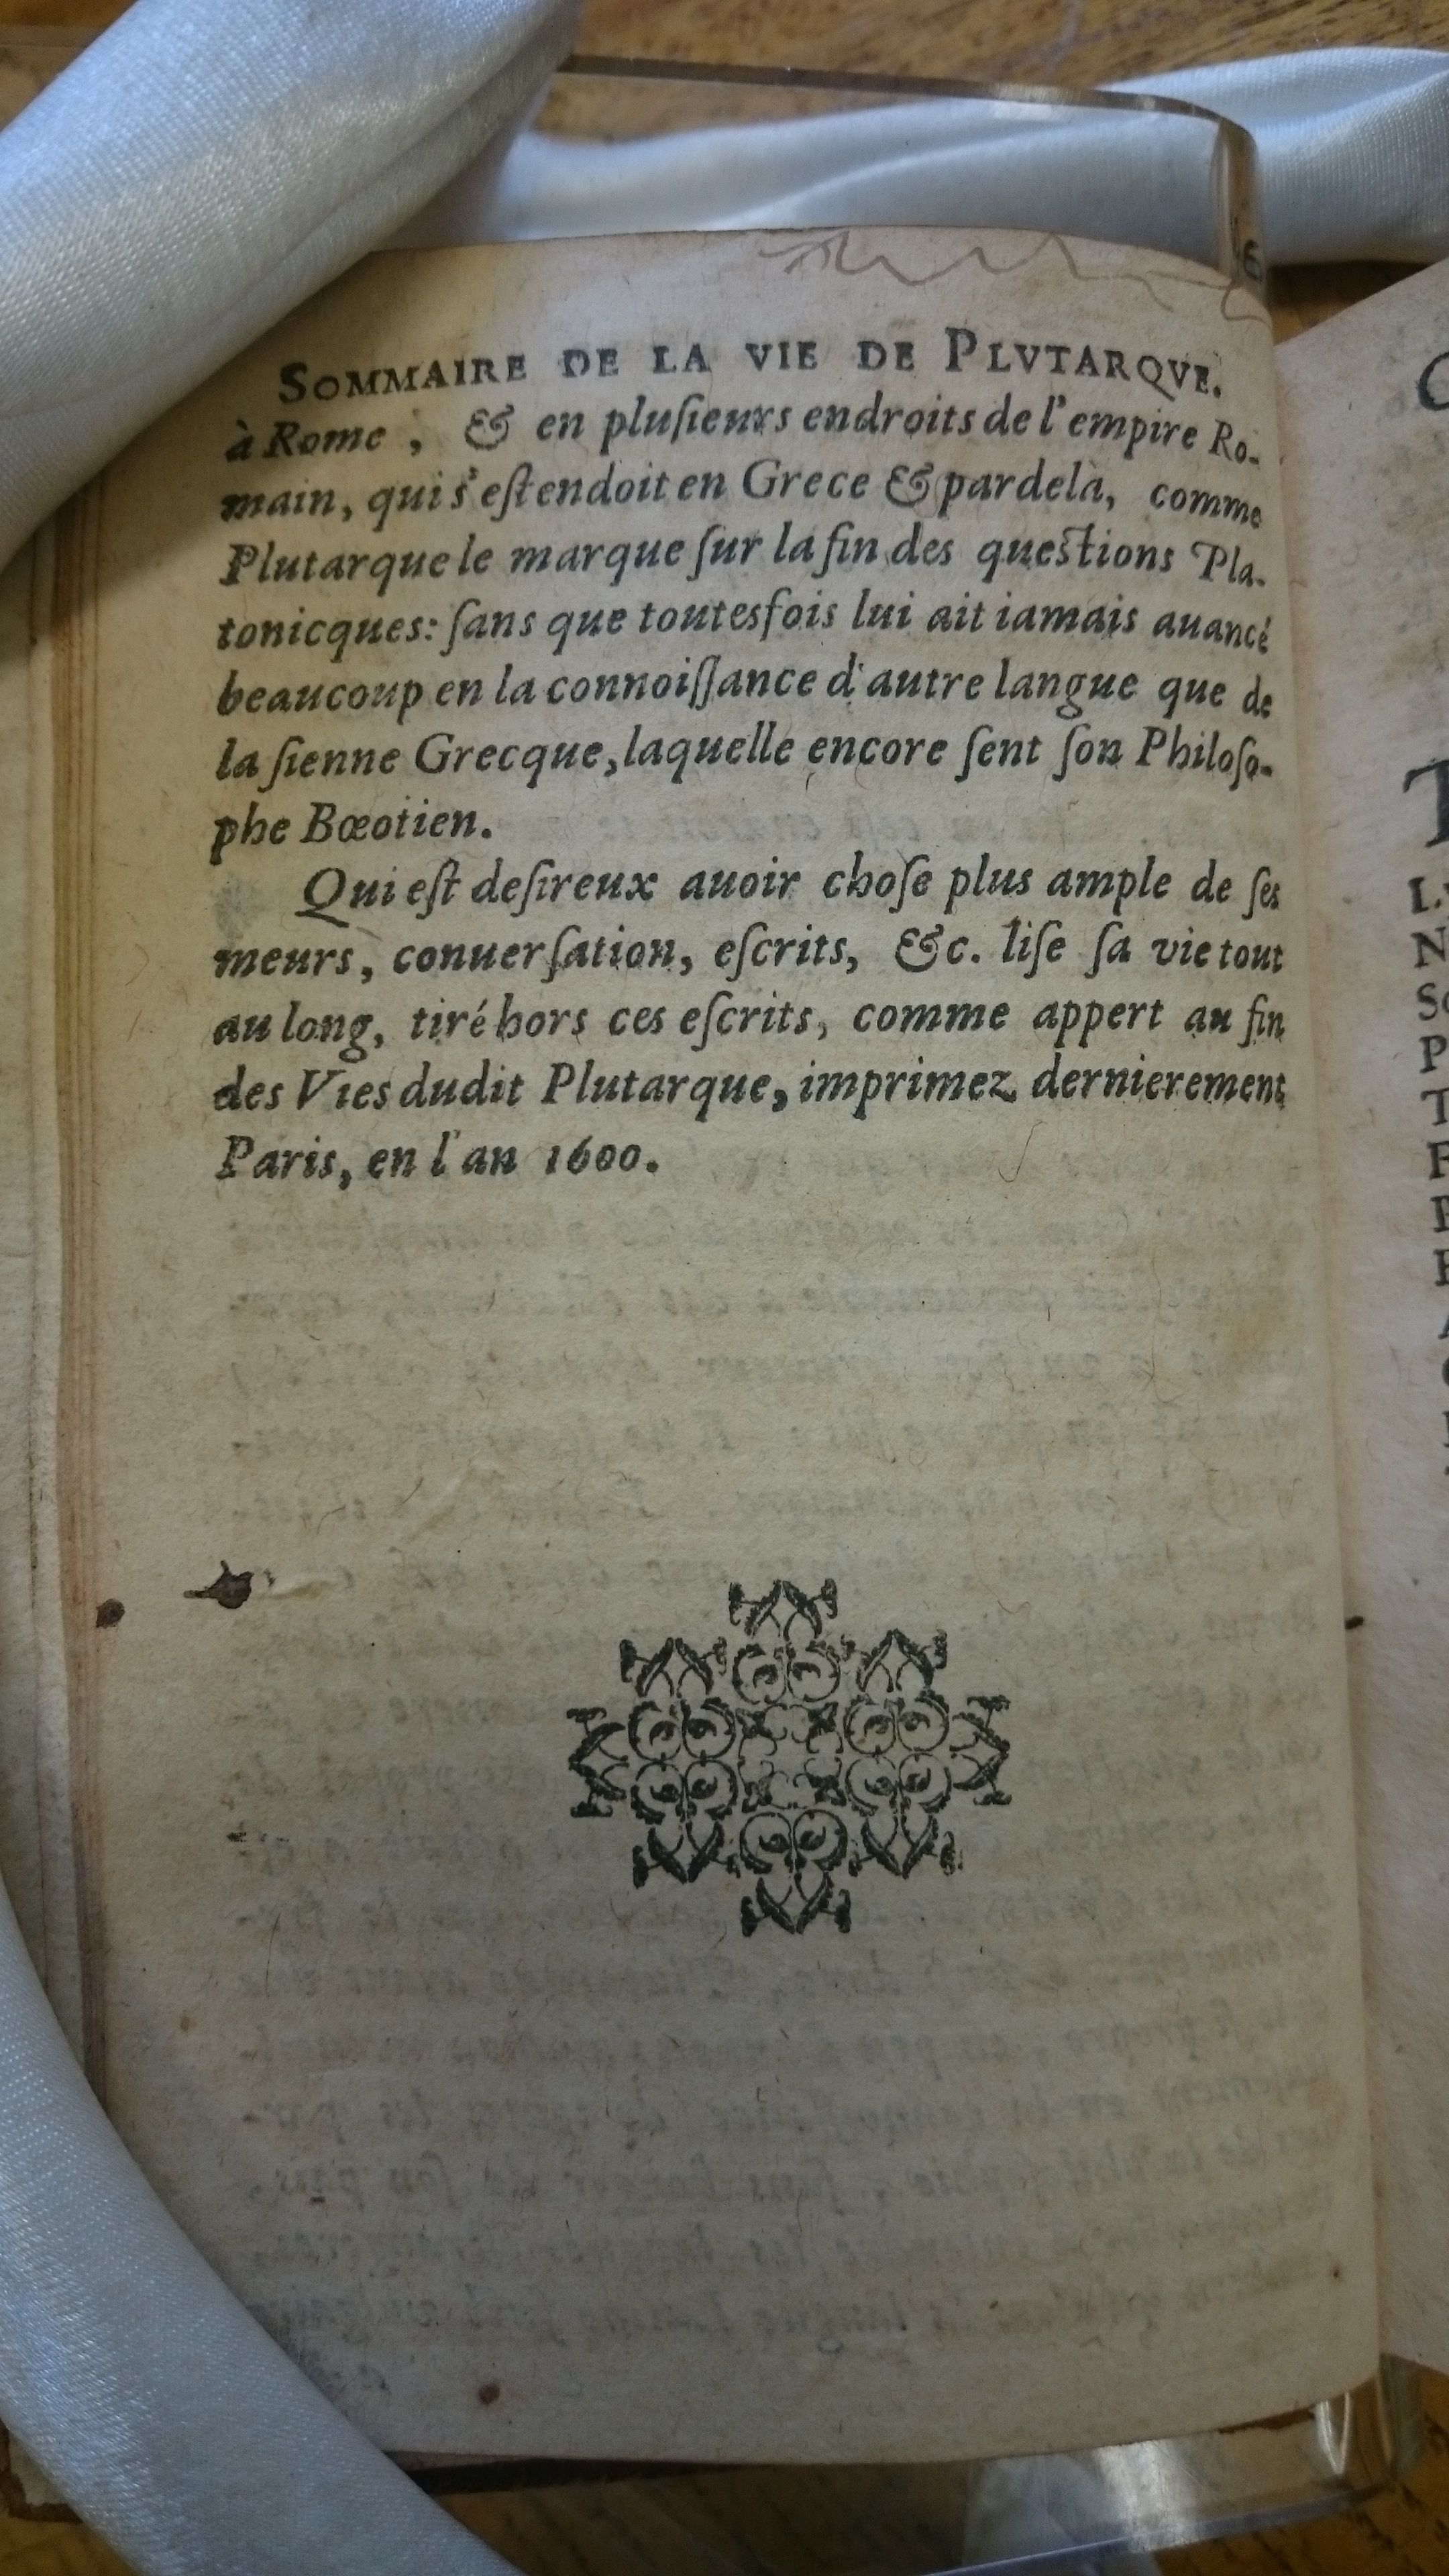 SOMMAIRE DE LA VIE DE PLVTARQVE.
à Rome, & en pluſieurs endroits de l'empire Ro-
main, qui s'eſtendoit en Grece & pardelà, comme
Plutarque le marque ſur la fin des queſtions Pla-
tonicques: ſans que toutesfois lui ait iamais auancé
beaucoup en la connoiſſance d'autre langue que de
la ſienne Grecque, laquelle encore ſent ſon Philoſo-
phe Bœotien.
Qui eſt deſireux auoir choſe plus ample de ſes
meurs, conuerſation, eſcrits, &c. liſe ſa vie tout
au long, tiré hors ces eſcrits, comme appert au fin
des Vies dudit Plutarque, imprimez dernierement
Paris, en l'an 1600.